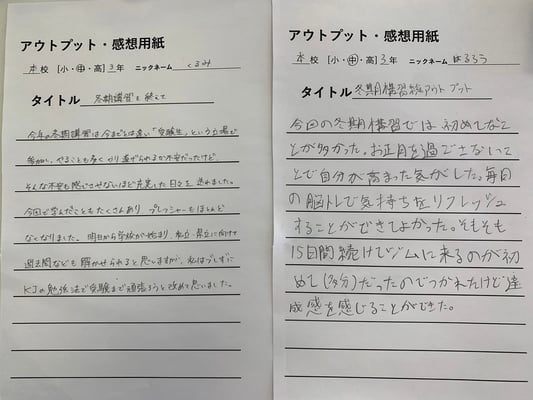 アウトプット・感想用紙
本校 [小・中・高] 3年 ニックネーム くるみ
タイトル 冬期講習を終えて
今年の冬期講習は今までとは違い「受験生」という立場で
参加し、やることも多くやり遂げられるか不安だったけど、
そんな不安も感じさせないほど充実した日々を送れました。
今回で学んだこともたくさんあり、プレッシャーもほとんど
なくなりました。明日から学校が始まり、私立・県立に向けて
過去問なども解かせられると思いますが、私はブレずに
KJの勉強法で受験まで頑張ろうと改めて思いました。
アウトプット・感想用紙
本校 [小・中・高] 3年 ニックネーム はるろう
タイトル 冬期講習終アウトプット
今回の冬期講習では初めてなこ
とが多かった。お正月を過ごさないこ
とで自分が高まった気がした。毎日
の脳トレで気持ちをリフレッシュ
することができてよかった。そもそも
15日間続けてジムに来るのが初
めて(多分)だったのでつかれたけど達
成感を感じることができた。